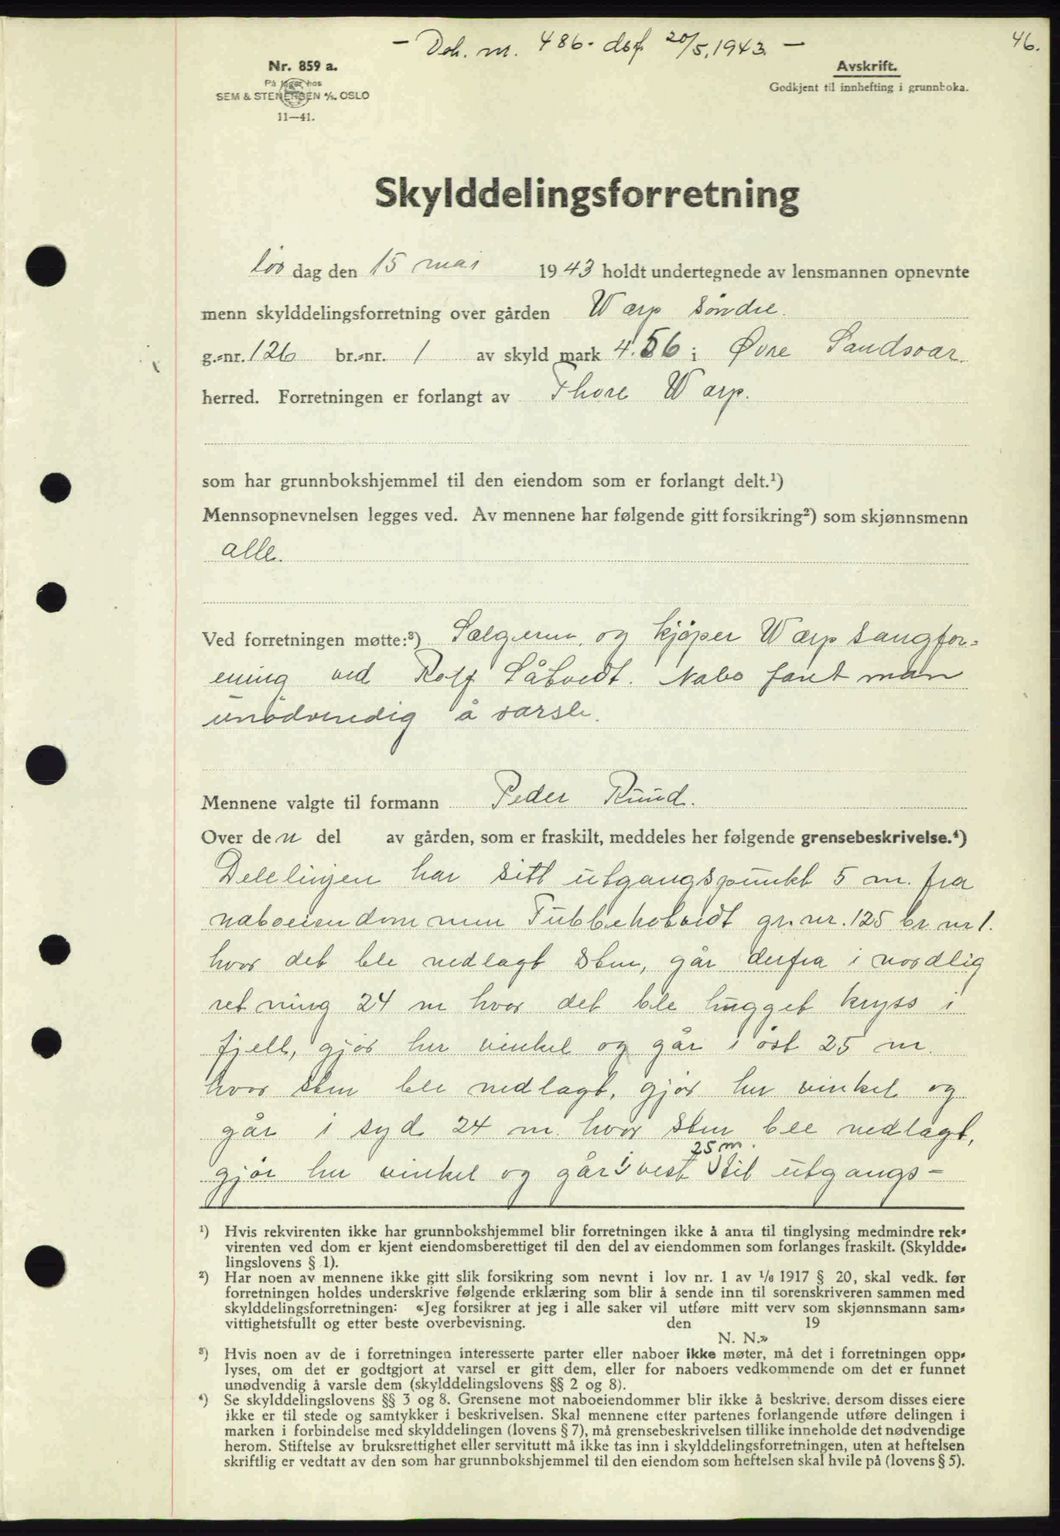 - Dok. nr. 486. dsf 20/5, 1943. -
46.
Nr. 859 a.
På lager hos
SEM & STENERSEN A/S. OSLO
11—41.
Avskrift.
Godkjent til innhefting i grunnboka.
Skylddelingsforretning
lør dag den 15 mai 1943 holdt undertegnede av lensmannen opnevnte
menn skylddelingsforretning over gården Warp Søndre.
g.-nr. 126 br.-nr. 1 av skyld mark 4.56 i Øvre Sandsvær.
herred. Forretningen er forlangt av Thore Warp.
som har grunnbokshjemmel til den eiendom som er forlangt delt.¹)
Mennsopnevnelsen legges ved. Av mennene har følgende gitt forsikring²) som skjønnsmenn
alle.
Ved forretningen møtte:³) Selgeren, og kjøper Warp sangfor-
ening ved Rolf Såtvedt. Nabo fant man
unødvendig å varsle.
Mennene valgte til formann Peder Ruud.
Over den del av gården, som er fraskilt, meddeles her følgende grensebeskrivelse.⁴)
Delelinjen har sitt utgangspunkt 5 m. fra
naboeiendommen gr. nr. 125 br. nr 1.
hvor det ble nedlagt sten, går derfra i nordlig
retning 24 m hvor det ble hugget kryss i
fjell, gjør her vinkel og går i øst 25 m.
hvor sten ble nedlagt, gjør her vinkel og
går i syd 24 m. hvor sten ble nedlagt,
gjør her vinkel og går i vest 25 m. til utgangs-
¹) Hvis rekvirenten ikke har grunnbokshjemmel blir forretningen ikke å anta til tinglysing medmindre rek-
virenten ved dom er kjent eiendomsberettiget til den del av eiendommen som forlanges fraskilt. (Skyldde-
lingslovens § 1).
²) Har noen av mennene ikke gitt slik forsikring som nevnt i lov nr. 1 av 1/6 1917 § 20, skal vedk. før
forretningen holdes underskrive følgende erklæring som blir å sende inn til sorenskriveren sammen med
skylddelingsforretningen: «Jeg forsikrer at jeg i alle saker vil utføre mitt verv som skjønnsmann sam-
vittighetsfullt og etter beste overbevisning. den 19
N. N.»
³) Hvis noen av de i forretningen interesserte parter eller naboer ikke møter, må det i forretningen opp-
lyses, om det er godtgjort at varsel er gitt dem, eller for naboers vedkommende om det er funnet
unødvendig å varsle dem (skylddelingslovens §§ 2 og 8).
⁴) Se skylddelingslovens §§ 3 og 8. Grensene mot naboeiendommer blir ikke å beskrive, dersom disses eiere
ikke er til stede og samtykker i beskrivelsen. Skal mennene etter partenes forlangende utføre delingen i
marken i forbindelse med skylddelingen (lovens § 7), må grensebeskrivelsen tillike inneholde det nødvendige
herom. Stiftelse av bruksrettighet eller servitutt må ikke tas inn i skylddelingsforretningen, uten at heftelsen
skriftlig er vedtatt av den som har grunnbokshjemmel til den eiendom som heftelsen skal hvile på (lovens § 5).